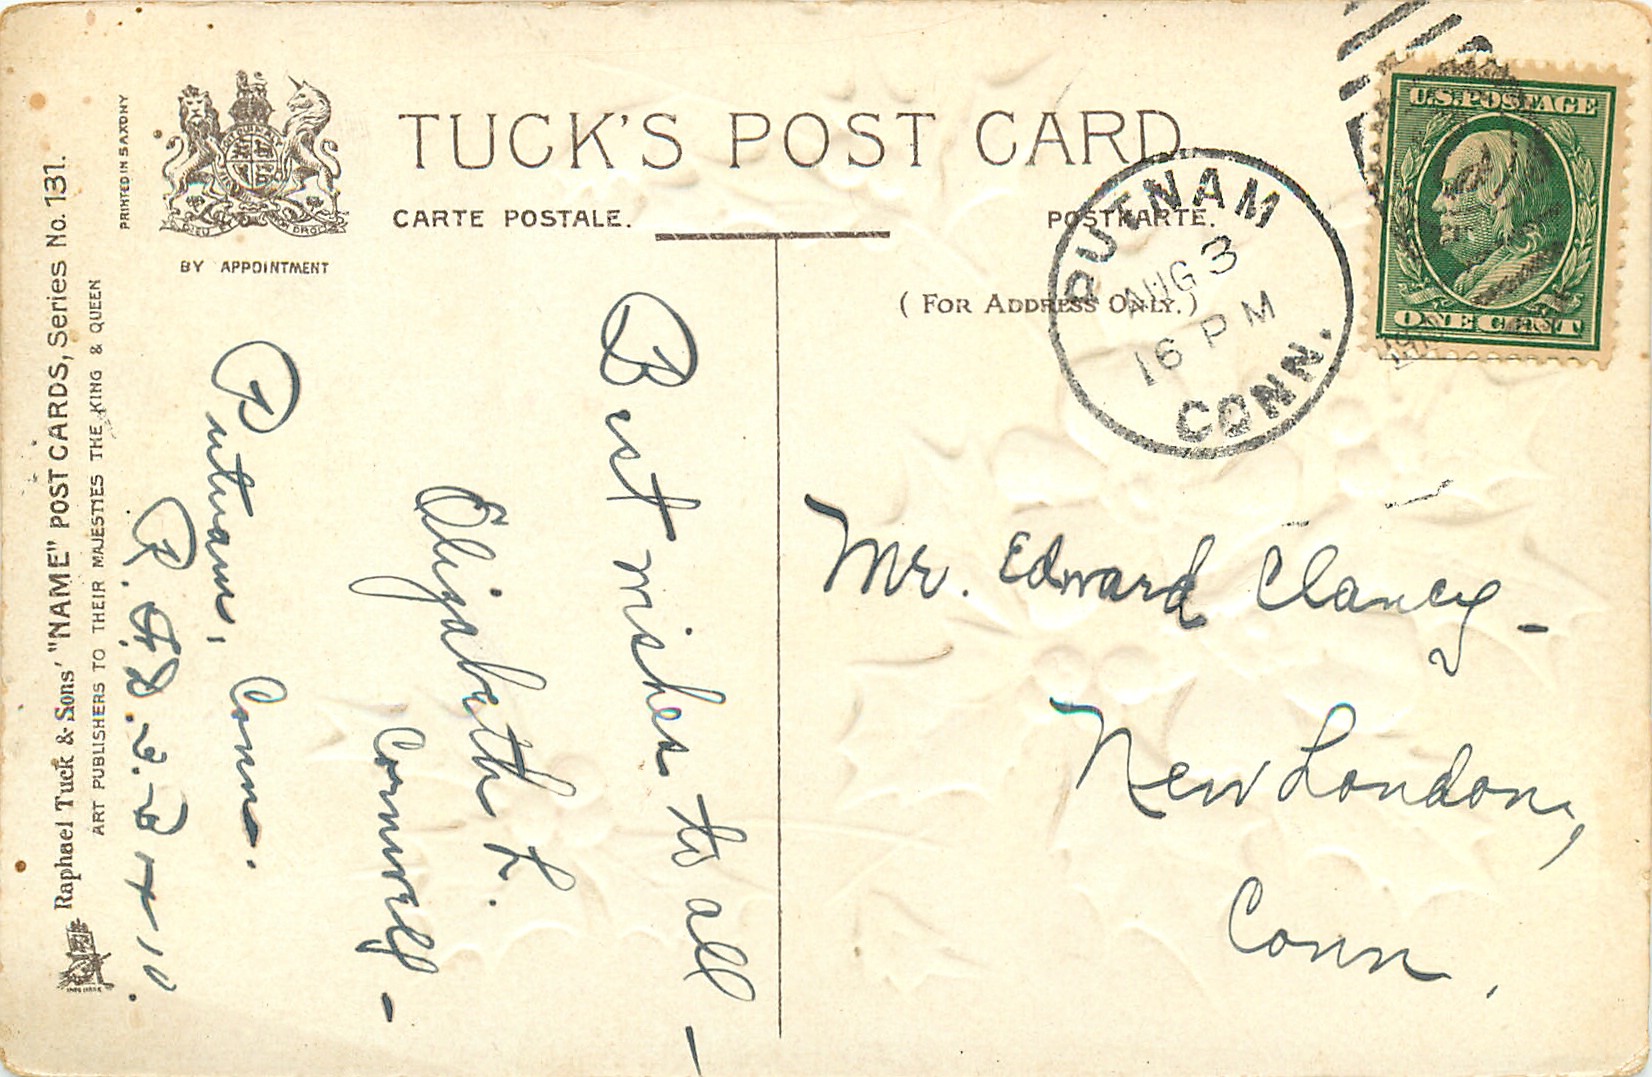 TUCK'S POST CARD
CARTE POSTALE.
POSTKARTE.
BY APPOINTMENT
(FOR ADDRESS ONLY.)
PRINTED IN SAXONY
Raphael Tuck & Sons' "NAME" POST CARDS, Series No. 131.
ART PUBLISHERS TO THEIR MAJESTIES THE KING & QUEEN
U.S. POSTAGE
ONE CENT
PUTNAM
AUG 3
16 PM
CONN.
Best wishes to all –
Elizabeth L.
Cornwell –
Putnam, Conn.
R. F. D.
Mr. Edward Clancy –
New London,
Conn.